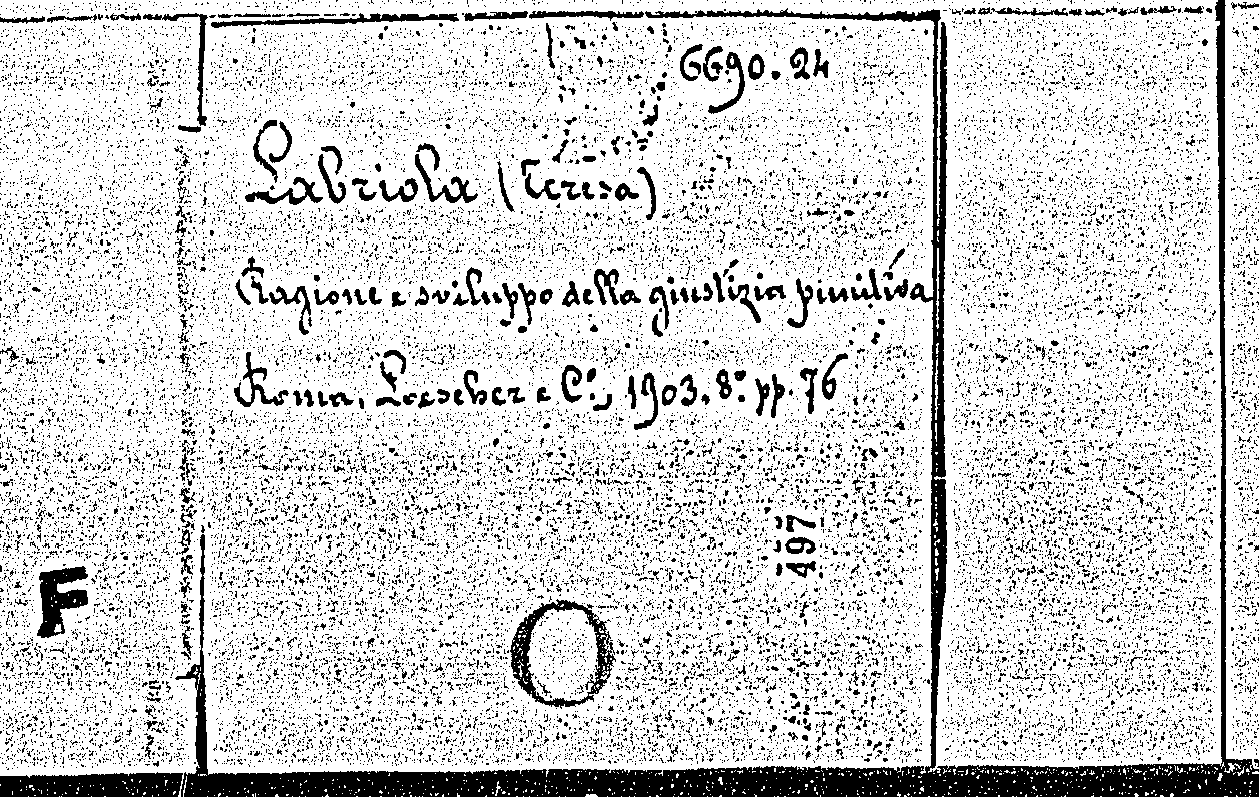 6690.24
Labriola (Teresa)
Ragione e sviluppo della giustizia punitiva
Roma, Loescher e C.º, 1903. 8.º pp. 76
497
F